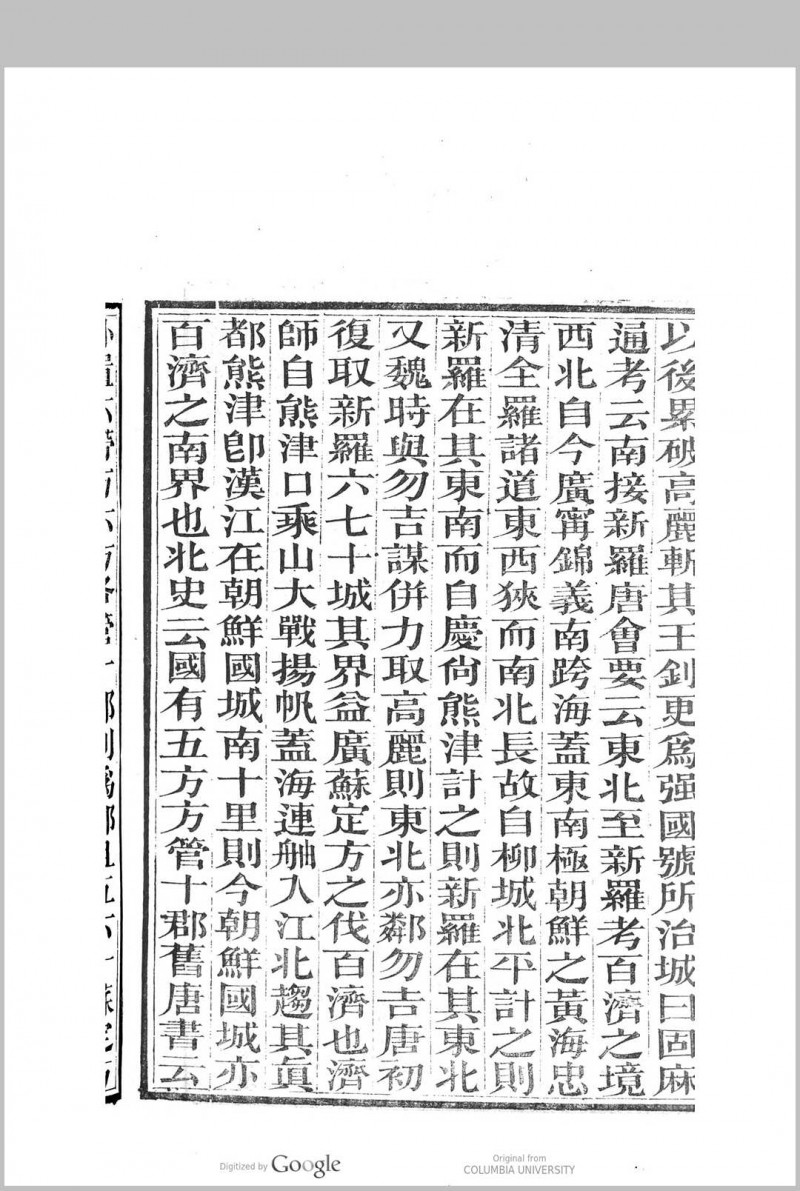 以後累破高麗斬其王釗更爲强國號所治城曰固麻
通考云南接新羅唐會要云東北至新羅考百濟之境
西北自今廣甯錦義南跨海蓋東南極朝鮮之黃海忠
清全羅諸道東西狹而南北長故自柳城北平計之則
新羅在其東南而自慶尙熊津計之則新羅在其東北
又魏時與勿吉謀併力取高麗則東北亦鄰勿吉唐初
復取新羅六七十城其界益廣蘇定方之伐百濟也濟
師自熊津口乘山大戰揚帆蓋海連舳入江北趨其眞
都熊津卽漢江在朝鮮國城南十里則今朝鮮國城亦
百濟之南界也北史云國有五方方管十郡舊唐書云
Digitized by Google
Original from
COLUMBIA UNIVERSITY